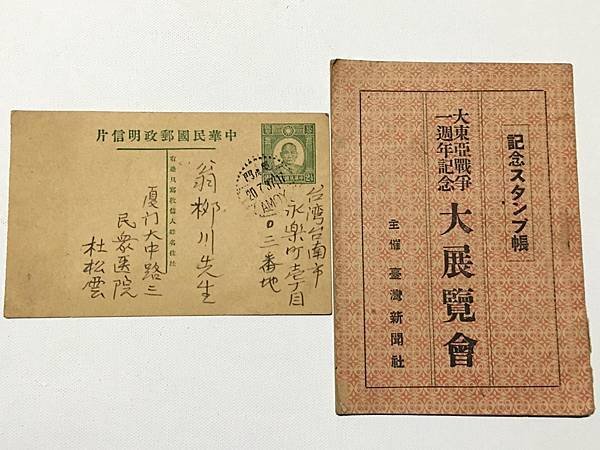 片信明政郵國民華中
有邊只寫收信人姓名住址
台湾台南市
永楽町壱丁目
一〇三番地
翁柳川先生
厦门大中路三
民衆医院
杜松雲
AMOY
記念スタンプ帳
大東亞戰爭
一週年記念
大展覽會
主催 臺灣新聞社